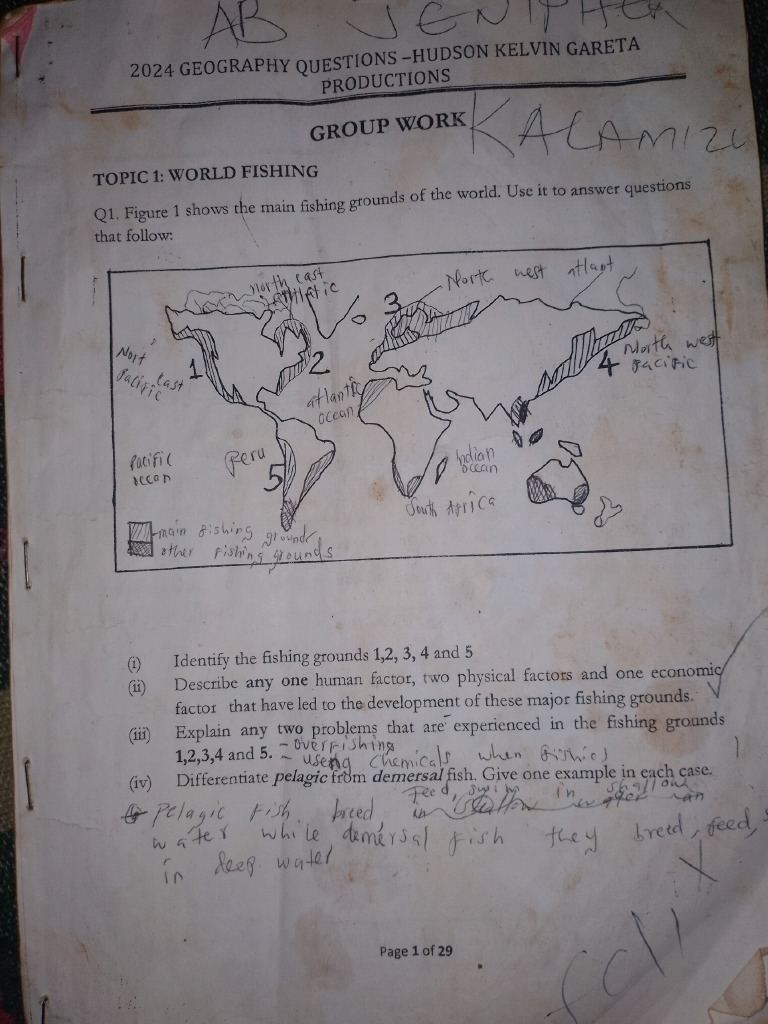 AB JENIPHER
2024 GEOGRAPHY QUESTIONS –HUDSON KELVIN GARETA
PRODUCTIONS
GROUP WORK
KALAMIZU
TOPIC 1: WORLD FISHING
Q1. Figure 1 shows the main fishing grounds of the world. Use it to answer questions
that follow:
north east
atlantic
North west atlant
3
1
2
4
North west
pacific
Nort east
pacific
atlantic
ocean
pacific
ocean
peru
5
Indian
ocean
South Africa
main fishing ground
other fishing grounds
(i) Identify the fishing grounds 1,2, 3, 4 and 5
(ii) Describe any one human factor, two physical factors and one economic
factor that have led to the development of these major fishing grounds.
(iii) Explain any two problems that are experienced in the fishing grounds
1,2,3,4 and 5. - overfishing
- using chemicals when fishing
(iv) Differentiate pelagic from demersal fish. Give one example in each case.
pelagic fish breed, feed, swim in shallow
water while demersal fish they breed, feed,
in deep water
Page 1 of 29